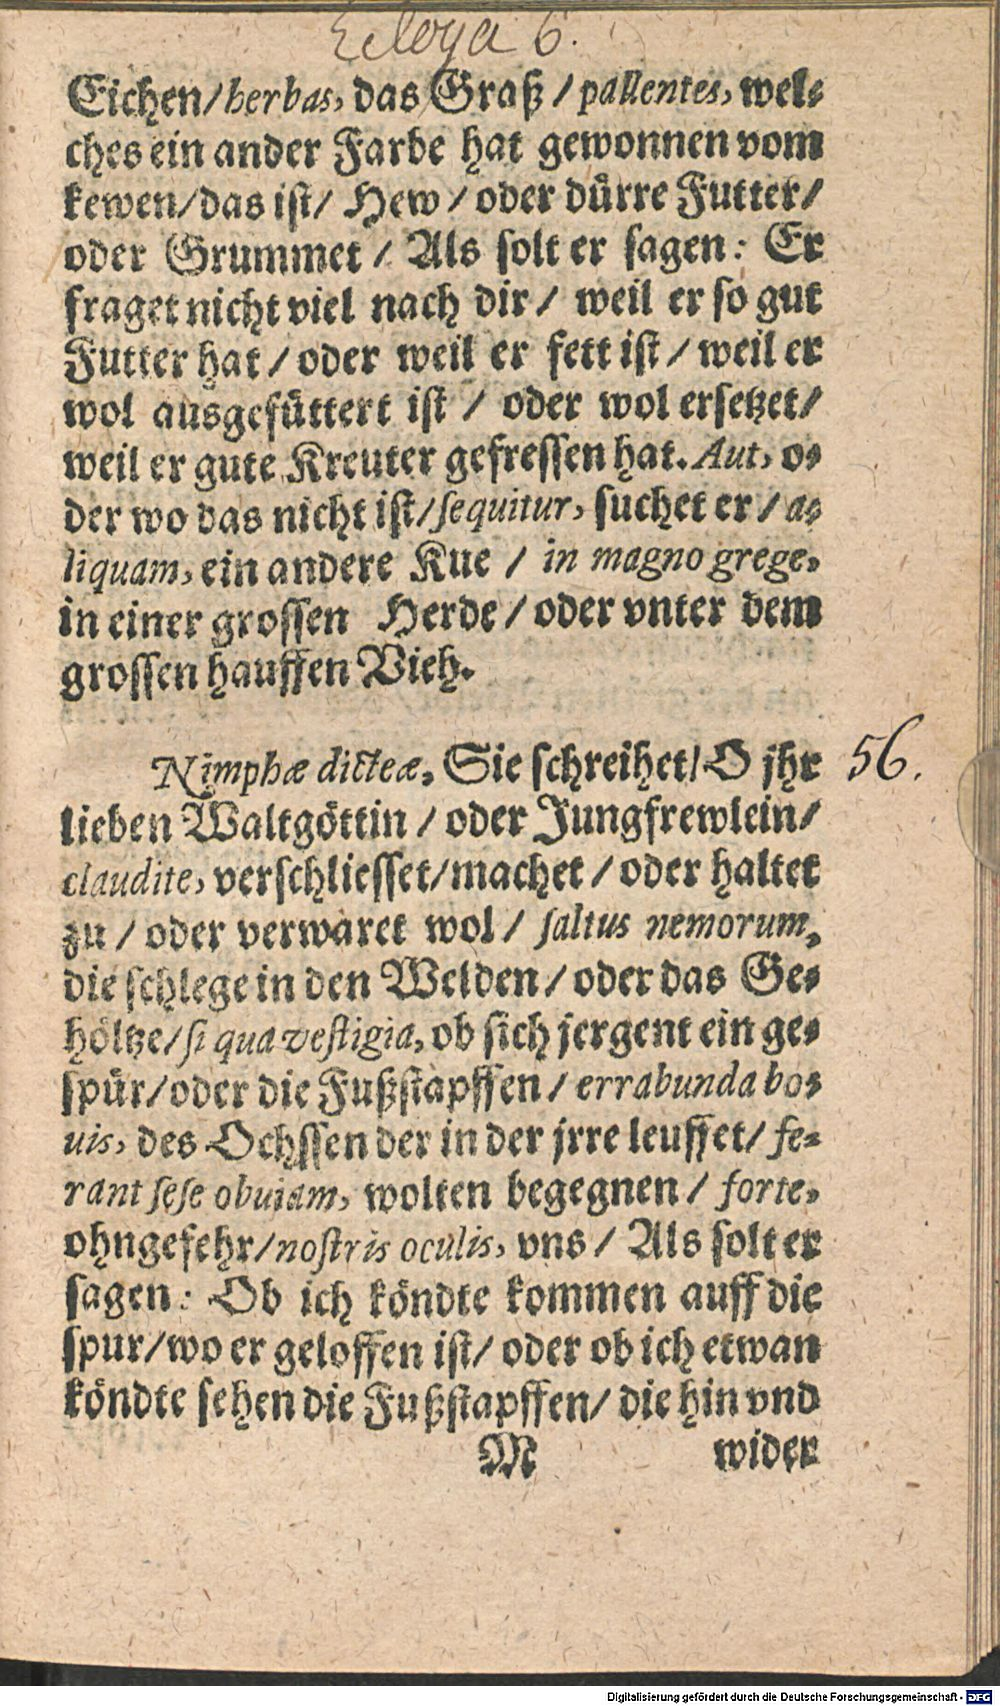 Ecloga 6.
Eichen/herbas, das Graß/pallentes, wel⸗
ches ein ander Farbe hat gewonnen vom
kewen/das ist/ Hew/oder dürre Futter/
oder Grummet/ Als solt er sagen: Er
fraget nicht viel nach dir/ weil er so gut
Futter hat/oder weil er fett ist/weil er
wol ausgefüttert ist/ oder wol ersetzet/
weil er gute Kreuter gefressen hat. Aut, o⸗
der wo das nicht ist/sequitur, suchet er/a⸗
liquam, ein andere Kue/ in magno grege,
in einer grossen Herde/oder vnter dem
grossen hauffen Vieh.
Nimphæ dicteæ, Sie schreihet/O jhr 56.
lieben Waltgöttin/oder Jungfrewlein/
claudite, verschliesset/machet/oder haltet
zu/oder verwaret wol/ saltus nemorum,
die schlege in den Welden/oder das Ge⸗
höltze/si qua vestigia, ob sich jergent ein ge⸗
spür/oder die Fußstapffen/errabunda bo⸗
uis, des Ochssen der in der jrre leuffet/ fe⸗
rant sese obuiam, wolten begegnen/ forte,
ohngefehr/nostris oculis, vns/ Als solt er
sagen: Ob ich köndte kommen auff die
spur/wo er geloffen ist/oder ob ich etwan
köndte sehen die Fußstapffen/die hin vnd
M wider
Digitalisierung gefördert durch die Deutsche Forschungsgemeinschaft - DFG